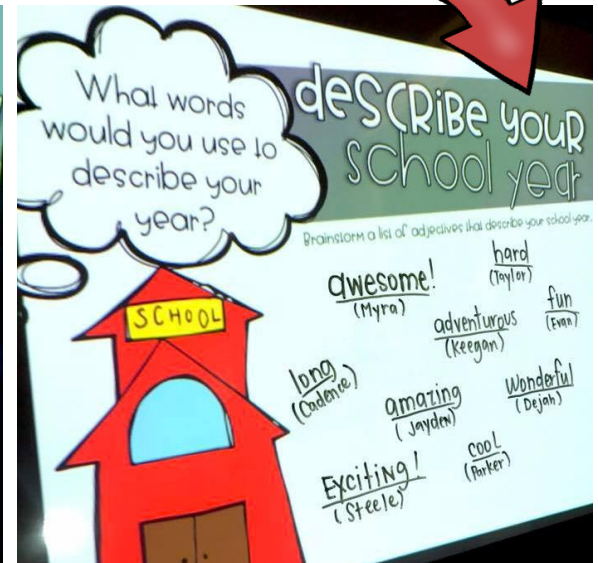 What words
would you use to
describe your
year?
describe your
school year
Brainstorm a list of adjectives that describe your school year.
SCHOOL
awesome!
(Myra)
hard
(Taylor)
adventurous
(Keegan)
fun
(Evan)
long
(Cadence)
amazing
(Jayden)
Wonderful
(Dejah)
Exciting!
(Steele)
cool
(Parker)